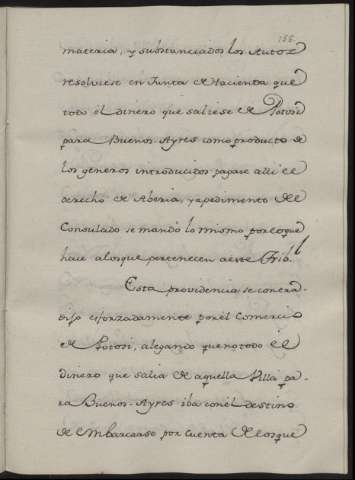 166.
materia, y substanciados los Autos
resolviese en Junta de Hacienda que
todo el dinero que saliese de Potosi
para Buenos Ayres como producto de
los generos introducidos pagase alli el
derecho de Aberia, y apedimento del
Consulado se mandó lo mismo por lo que
hace alos que pertenecen a este Tribl
Esta providencia se contra
dijo esforzadamente por el Comercio
de Potosi, alegando que no todo el
dinero que salia de aquella Villa pa-
ra Buenos-Ayres iba con el destino
de embarcarse por cuenta de los que